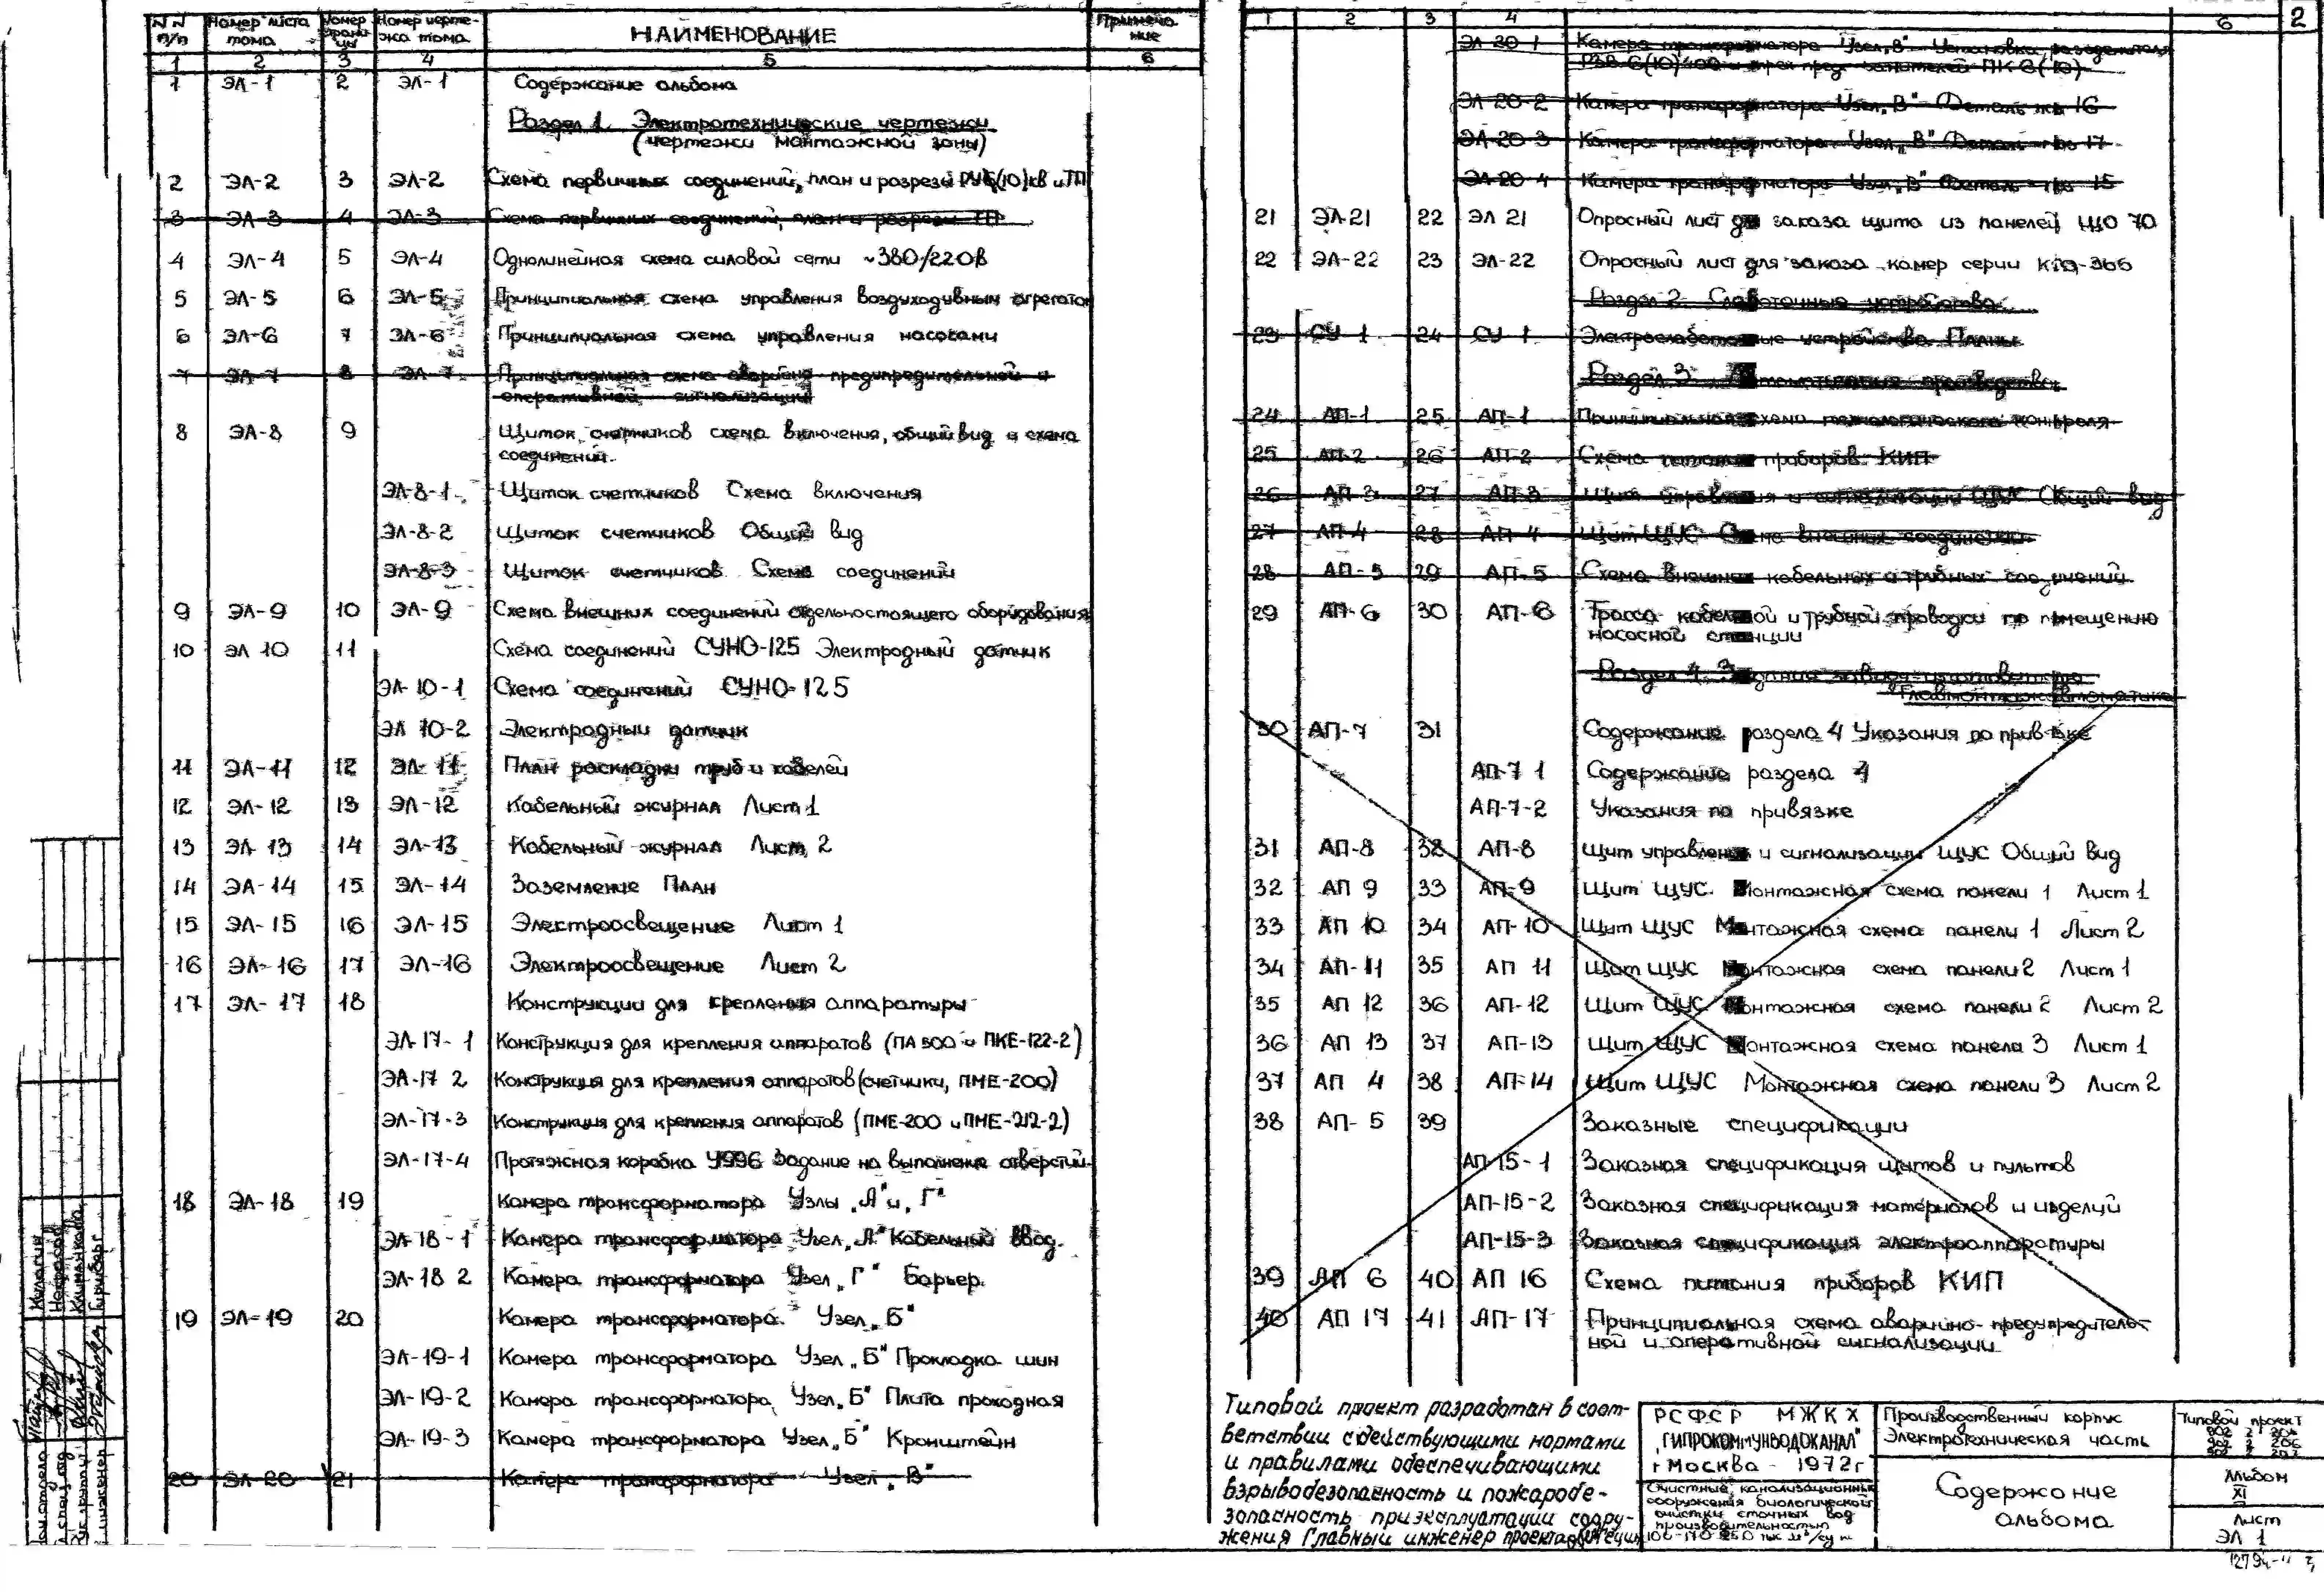 N N п/п | Номер листа тома | Номер страницы | Номер чертежа тома | НАИМЕНОВАНИЕ | Примечание
1 | 2 | 3 | 4 | 5 | 6
1 ЭЛ-1 2 ЭЛ-1 Содержание альбома
Раздел 1. Электротехнические чертежи
(чертежи монтажной зоны)
2 ЭЛ-2 3 ЭЛ-2 Схема первичных соединений, план и разрезы РУ6(10)кв и ТП
3 ЭЛ-3 4 ЭЛ-3 Схема первичных соединений, план и разрезы ТП
4 ЭЛ-4 5 ЭЛ-4 Однолинейная схема силовой сети ~380/220в
5 ЭЛ-5 6 ЭЛ-5 Принципиальная схема управления воздуходувным агрегатом
6 ЭЛ-6 7 ЭЛ-6 Принципиальная схема управления насосами
7 ЭЛ-7 8 ЭЛ-7 Принципиальная схема аварийно предупредительной и
оперативной сигнализации
8 ЭЛ-8 9 Щиток счетчиков схема включения, общий вид и схема
соединений.
ЭЛ-8-1 Щиток счетчиков Схема включения
ЭЛ-8-2 Щиток счетчиков Общий вид
ЭЛ-8-3 Щиток счетчиков Схема соединений
9 ЭЛ-9 10 ЭЛ-9 Схема внешних соединений отдельностоящего оборудования
10 ЭЛ 10 11 Схема соединений СУНО-125 Электродный датчик
ЭЛ-10-1 Схема соединений СУНО-125
ЭЛ 10-2 Электродный датчик
11 ЭЛ-11 12 ЭЛ-11 План раскладки труб и кабелей
12 ЭЛ-12 13 ЭЛ-12 Кабельный журнал Лист 1
13 ЭЛ 13 14 ЭЛ-13 Кабельный журнал Лист 2
14 ЭЛ-14 15 ЭЛ-14 Заземление План
15 ЭЛ-15 16 ЭЛ-15 Электроосвещение Лист 1
16 ЭЛ-16 17 ЭЛ-16 Электроосвещение Лист 2
17 ЭЛ-17 18 Конструкции для крепления аппаратуры
ЭЛ-17-1 Конструкция для крепления аппаратов (ПА 300 и ПКЕ-122-2)
ЭЛ-17 2 Конструкция для крепления аппаратов (счетчики, ПМЕ-200)
ЭЛ-17-3 Конструкция для крепления аппаратов (ПМЕ-200 и ПМЕ-212-2)
ЭЛ-17-4 Протяжная коробка У996 Задание на выполнение отверстий.
18 ЭЛ-18 19 Камера трансформатора Узлы „А" и „Г"
ЭЛ-18-1 Камера трансформатора Узел „А" Кабельный ввод.
ЭЛ-18 2 Камера трансформатора Узел „Г" Барьер.
19 ЭЛ-19 20 Камера трансформатора. Узел „Б"
ЭЛ-19-1 Камера трансформатора Узел „Б" Прокладка шин
ЭЛ-19-2 Камера трансформатора Узел „Б" Плита проходная
ЭЛ-19-3 Камера трансформатора Узел „Б" Кронштейн
20 ЭЛ-20 21 Камера трансформатора Узел „В"
Кулагин
Некрасов
Климанова
Гирнберг
2
1 | 2 | 3 | 4 | 6
ЭЛ 20-1 Камера трансформатора Узел „В" Установка разъединителя
ЭЛ 20-2 Камера трансформатора Узел „В" Деталь 16
ЭЛ-20-3 Камера трансформатора Узел „В" Деталь 17
ЭЛ-20 4 Камера трансформатора Узел „В" Деталь 15
21 ЭЛ-21 22 ЭЛ 21 Опросный лист для заказа щита из панелей ЩО 70
22 ЭЛ-22 23 ЭЛ-22 Опросный лист для заказа камер серии КСО-366
Раздел 2. Слаботочные устройства
23 СУ-1 24 СУ-1 Электрослаботочные устройства Планы
Раздел 3. Автоматизация производства
24 АП-1 25 АП-1 Принципиальная схема технологического контроля
25 АП-2 26 АП-2 Схема питания приборов КИП
26 АП-3 27 АП-3 Щит управления и сигнализации ЩУС Общий вид
27 АП-4 28 АП-4 Щит ЩУС Схема внешних соединений
28 АП-5 29 АП-5 Схема внешних кабельных и трубных соединений
29 АП-6 30 АП-6 Трасса кабельной и трубной проводки по помещению
насосной станции
Раздел 4. Задание заводу-изготовителю
"Главмонтажавтоматика"
30 АП-7 31 Содержание раздела 4 Указания по привязке
АП-7 1 Содержание раздела 4
АП-7-2 Указания по привязке
31 АП-8 32 АП-8 Щит управления и сигнализации ЩУС Общий вид
32 АП 9 33 АП-9 Щит ЩУС. Монтажная схема панели 1 Лист 1
33 АП 10 34 АП-10 Щит ЩУС Монтажная схема панели 1 Лист 2
34 АП-11 35 АП 11 Щит ЩУС Монтажная схема панели 2 Лист 1
35 АП 12 36 АП-12 Щит ЩУС Монтажная схема панели 2 Лист 2
36 АП 13 37 АП-13 Щит ЩУС Монтажная схема панели 3 Лист 1
37 АП 4 38 АП-14 Щит ЩУС Монтажная схема панели 3 Лист 2
38 АП- 5 39 Заказные спецификации
АП-15-1 Заказная спецификация щитов и пультов
АП-15-2 Заказная спецификация материалов и изделий
АП-15-3 Заказная спецификация электроаппаратуры
39 АП 6 40 АП 16 Схема питания приборов КИП
40 АП 17 41 АП-17 Принципиальная схема аварийно-предупредитель-
ной и оперативной сигнализации
Типовой проект разработан в соот-
ветствии с действующими нормами
и правилами обеспечивающими
взрывобезопасность и пожаробе-
зопасность при эксплуатации соору-
жения Главный инженер проекта
РСФСР МЖКХ
„ГИПРОКОММУНВОДОКАНАЛ"
г Москва - 1972г
Очистные канализационные
сооружения биологической
очистки сточных вод
производительностью
100-170-250 тыс м³/сут
Производственный корпус
Электротехническая часть
Содержание
альбома
Типовой проект
902 2 204
902 2 206
902 2 207
Альбом
XI
Лист
ЭЛ 1
12794-11